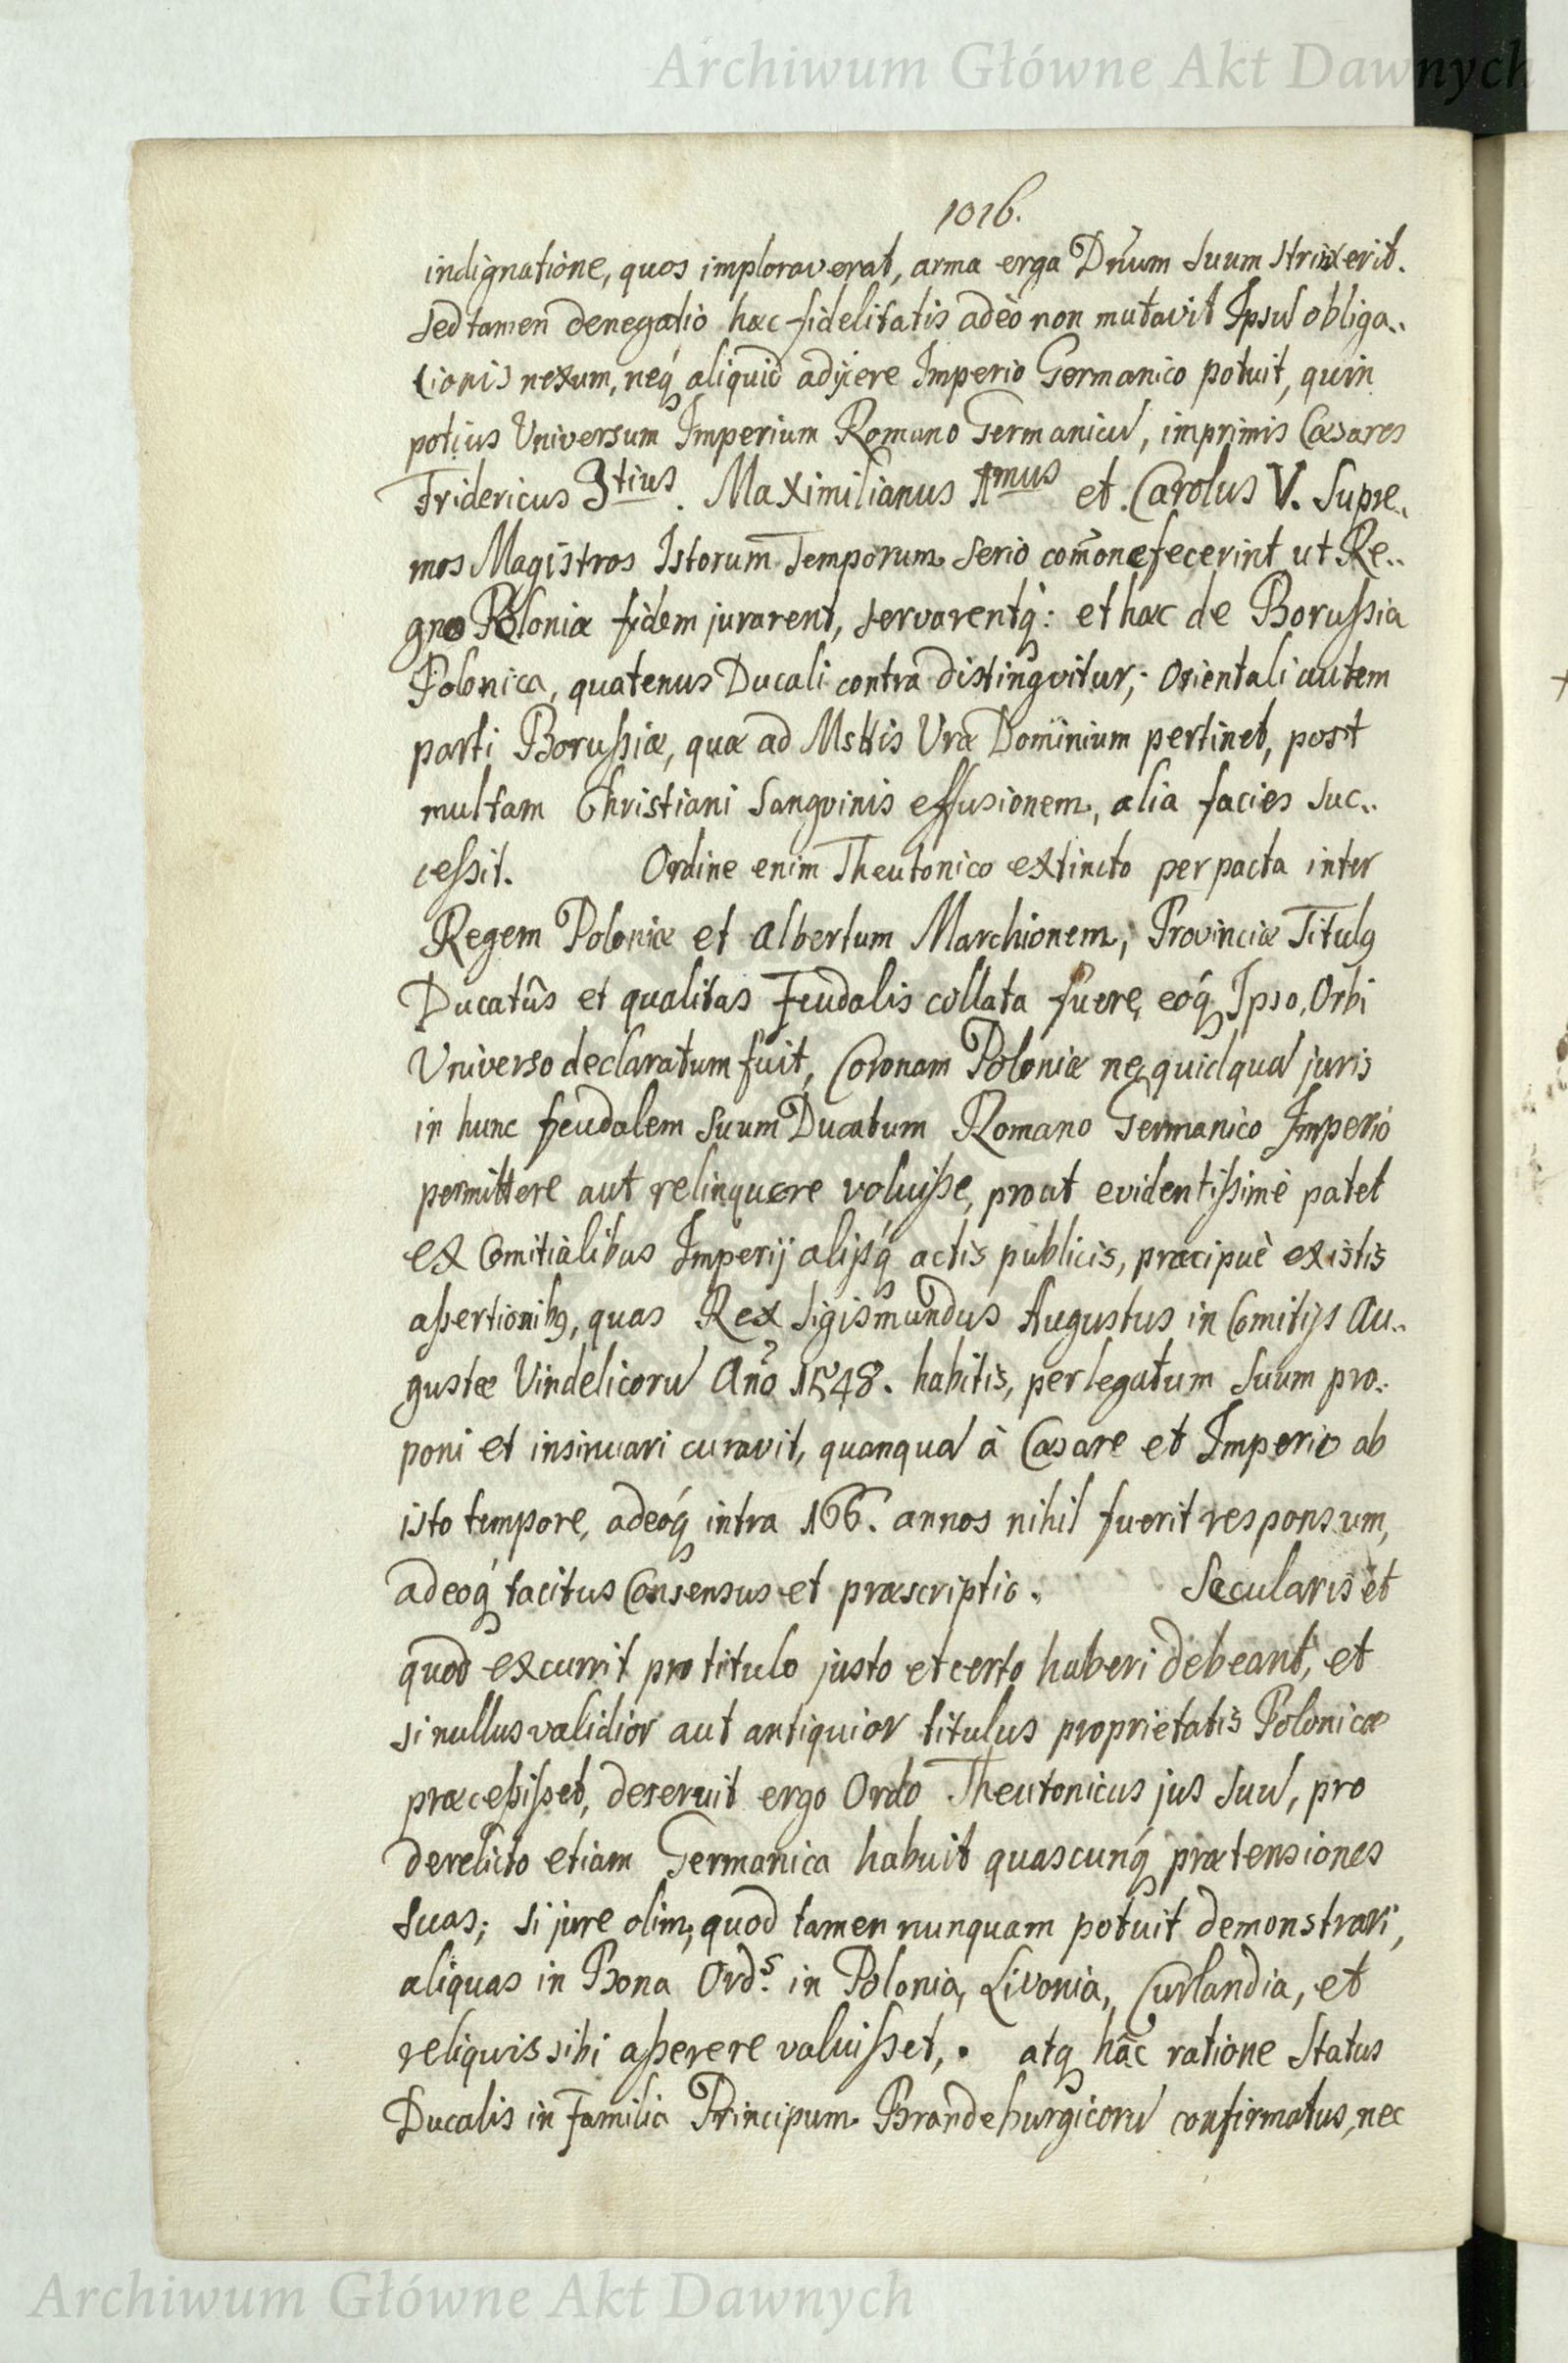 Archiwum Główne Akt Dawnych
1016.
indignatione, quos imploraverat, arma erga Dn̄um Suum strinxerit.
Sed tamen denegatio hæc fidelitatis adeò non mutavit Ipsu̅ obliga„
tionis nexum, neq́ aliquid adijcere Imperio Germanico potuit, quin
potius Universum Imperium Romano Germanicu̅, imprimis Cæsares
Fridericus 3tius. Maximilianus 1mus et Carolus V. Supre„
mos Magistros Istorum Temporum serio com̄onefecerint ut Re„
gno Poloniæ fidem jurarent, servarentq́: et hæc de Borussia
Polonica, quatenus Ducali contra distingvitur; Orientali autem
parti Borussiæ, quæ ad Msttis Vræ Dominium pertinet, post
multam Christiani Sangvinis effusionem, alia facies suc„
cessit. Ordine enim Theutonico extincto per pacta inter
Regem Poloniæ et Albertum Marchionem, Provinciæ Titulq
Ducatûs et qualitas Feudalis collata fuere, eoq́ Ipso, Orbi
Universo declaratum fuit, Coronam Poloniæ neqquidqua̅ juris
in hunc feudalem suum Ducatum Romano Germanico Imperio
permittere aut relinquere voluisse, prout evidentissimè patet
ex Comitialibus Imperij alijsq́ actis publicis, præcipuè ex istis
assertionibq, quas Rex Sigismundus Augustus in Comitijs Au„
gustæ Vindelicoru̅ An̄o 1548. habitis, per legatum Suum pro„
poni et insinuari curavit, quanqua̅ à Cæsare et Imperio ab
isto tempore, adeoq́ intra 166. annos nihil fuerit responsum,
adeoq́ tacitus Consensus et præscriptio. Sæcularis et
quod excurrit pro titulo justo et certo haberi debeant, et
si nullus validior aut antiquior titulus proprietatis Polonicæ
præcessisset, deseruit ergo Ordo Theutonicus jus suu̅, pro
derelicto etiam Germanica habuit quascunq́ prætensiones
suas; si jure olim, quod tamen nunquam potuit demonstrari,
aliquas in Bona Ords. in Polonia, Livonia, Curlandia, et
reliquis sibi asserere valuisset,. atq hâc ratione Status
Ducalis in Familia Principum Brandeburgicoru̅ confirmatus, nec
Archiwum Główne Akt Dawnych